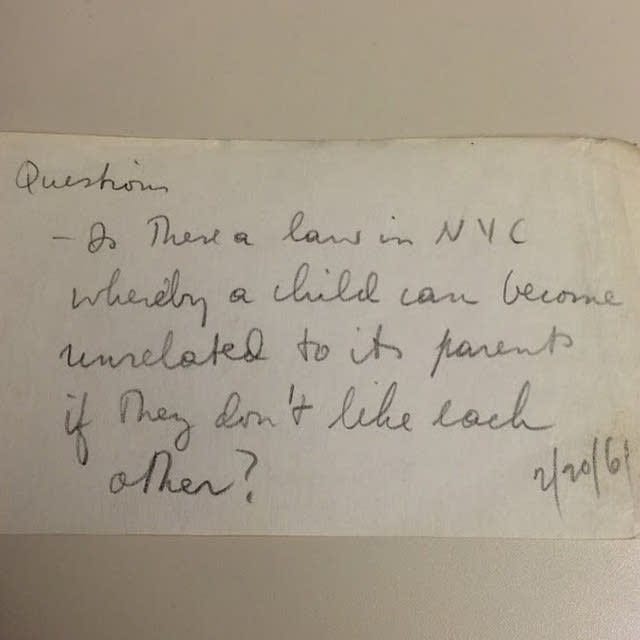 Questions
- Is There a law in NYC
whereby a child can become
unrelated to its parents
if they don't like each
other?
2/20/61